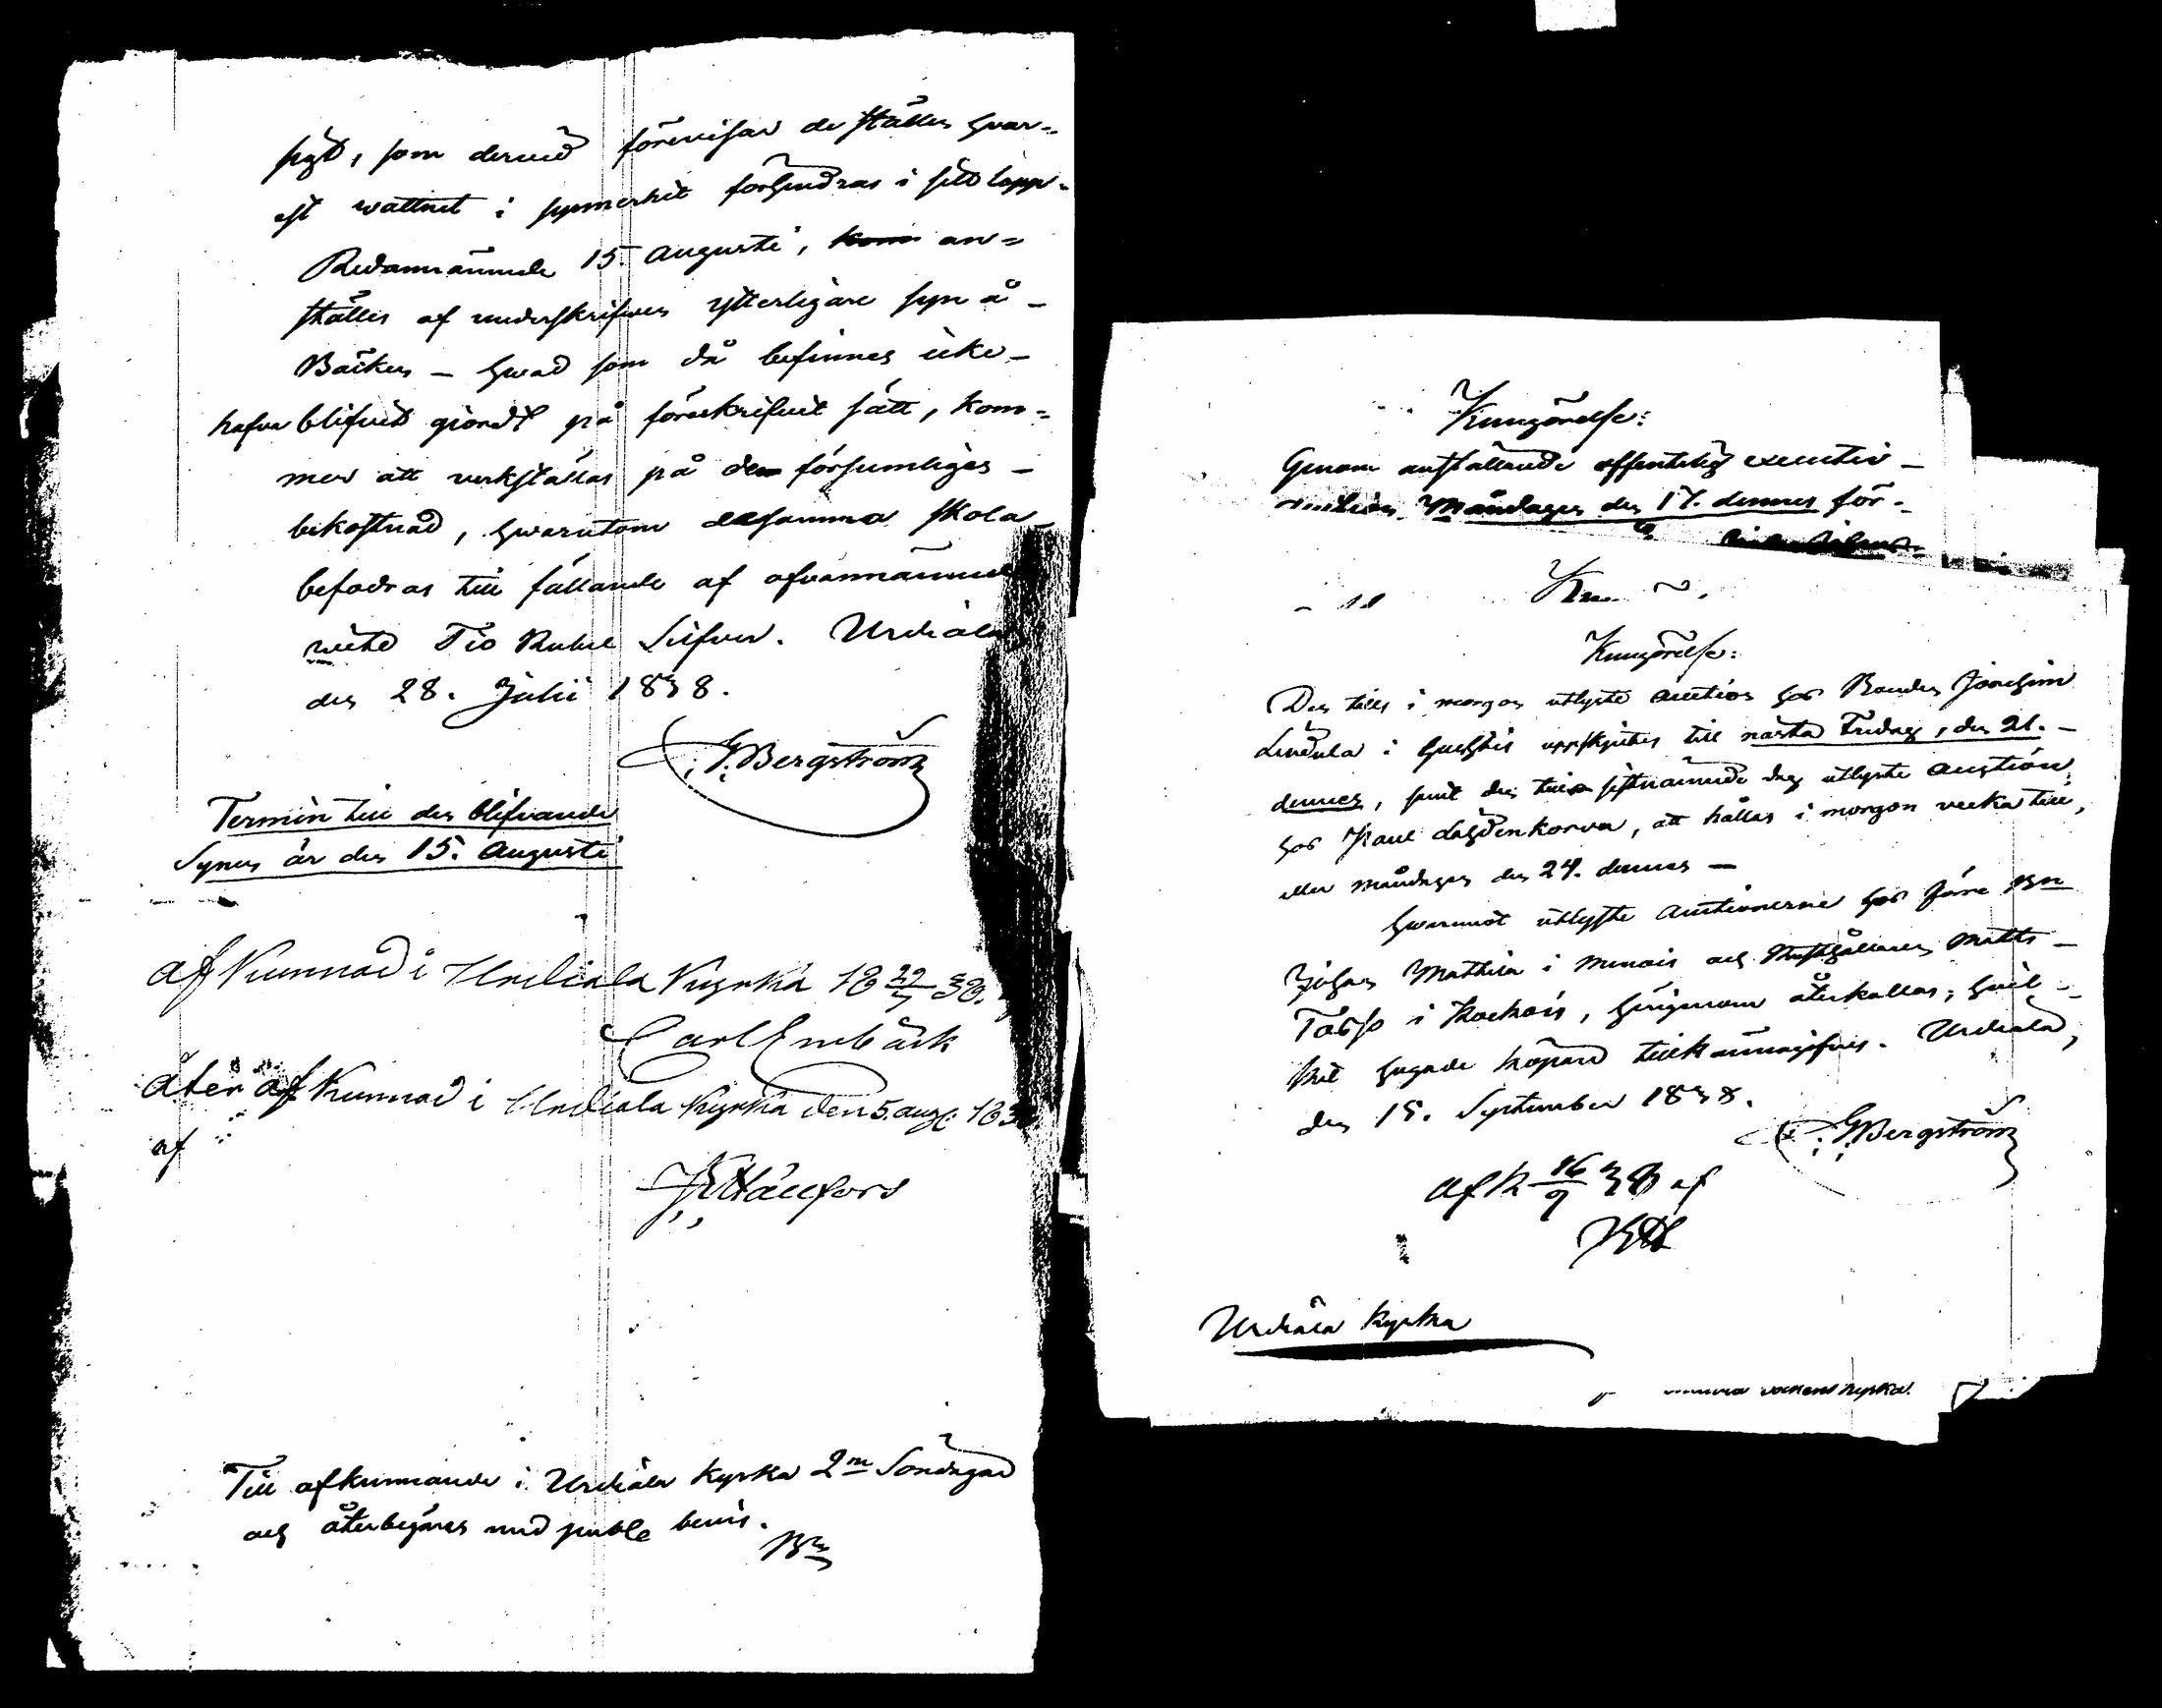 sigt, som dervid förevisar de ställen hvar-
est wattnet i synnerhet förhindras i sitt lopp.
Redannämnde 15. Augusti, kom an-
ställes af underskrifven ytterligare syn å
Bäcken – hwad som då befinnes icke
hafva blifvit giordt på föreskrifvit sätt, kom-
mer att verkställas på den försumliges
bekostnad, hwarutom desamma skola
befodras till fällande af ofvannämnde
wite Tio Rubel Silfver. Urdiala
den 28. Julii 1838.
G. Bergström
Termin till den blifvande
Synen är den 15. Augusti
Af Kunnad i Urdiala Kyrka 18 29/7 38.
Carl Enebäck
Åter af Kunnad i Urdiala Kyrka den 5. aug. 183
af
Hällfors
Till afkunnande i Urdiala Kyrka 2ne Söndagar
och återbegäres med publ. bevis.
Bm
Kungörelse:
Genom anställande offentelig executiv
auction Måndagen den 17. dennes för-
Kungörelse:
Den till i morgon utlyste auction hos Bonden Joachim
Lindula i Huhtis uppskjutes till nästa Fredag, den 21.
dennes, samt den till sistnämnde dag utlyste Auction,
hos Paul Lähdenkorva, att hållas i morgon vecka till,
eller måndagen den 24. dennes –
Hwaremot utlyste Auctionerne hos förre Bn
Johan Mattila i Menois och Rusthållaren Matts
i Kockois, härigenom återkallas; hvil-
ket hugade köpare tillkännagifves. Urdiala,
den 15. September 1838.
G. Bergström
Af K 16/9 38 af
Urdiala Kyrka
sockens kyrka.